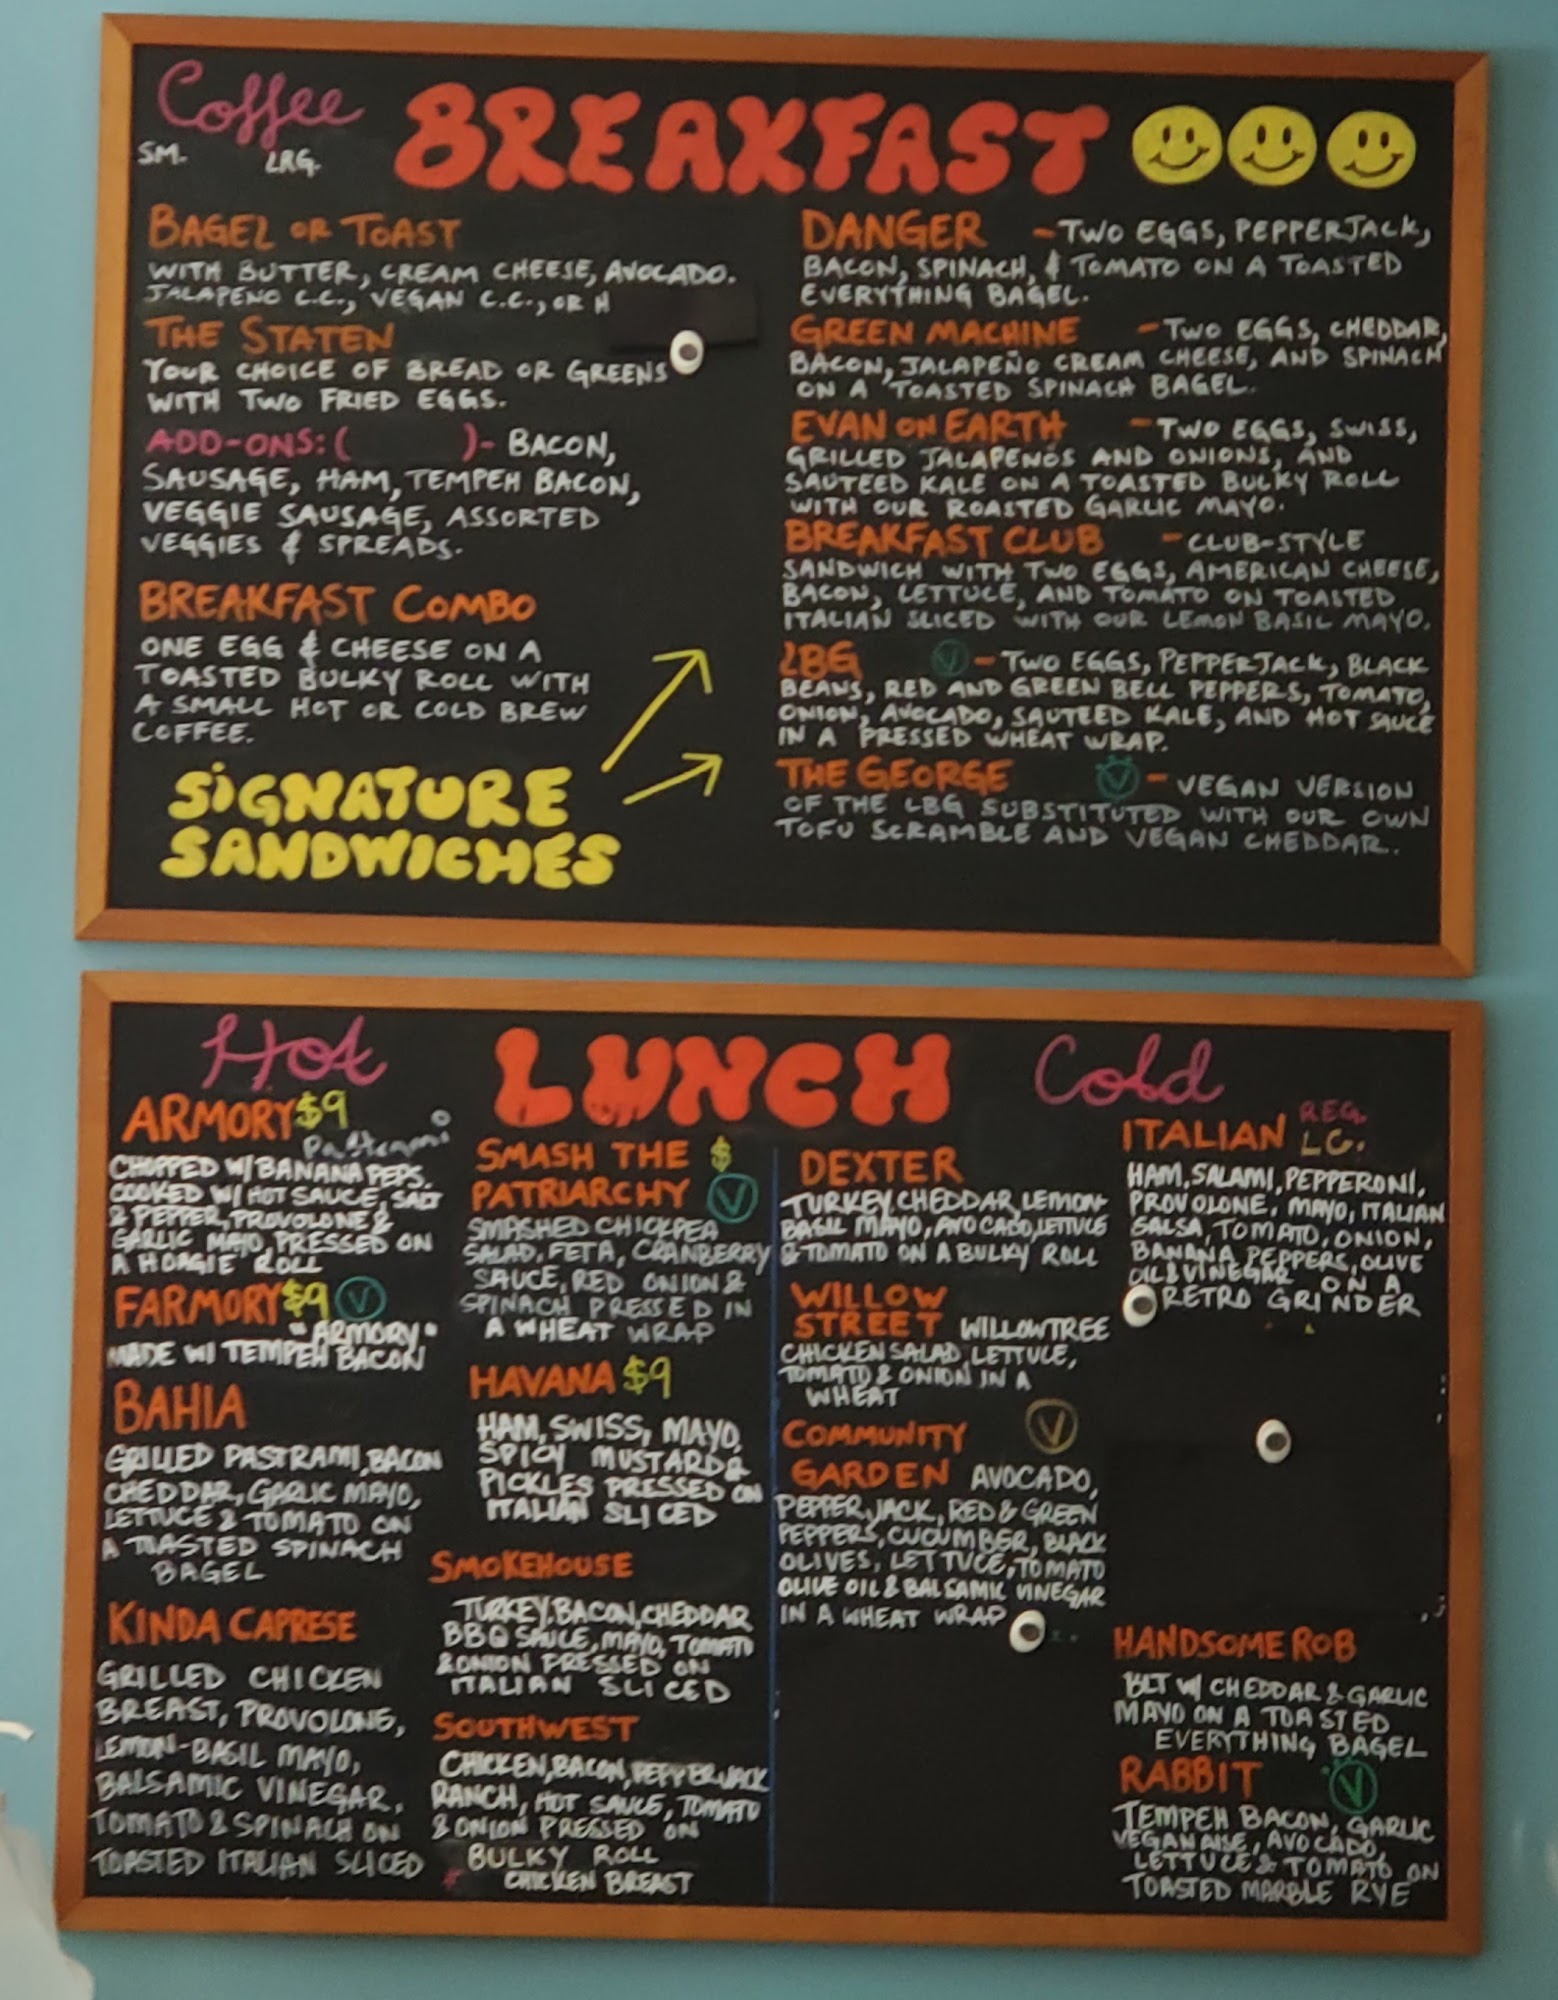 Coffee
SM. LRG.
BREAKFAST
BAGEL OR TOAST
WITH BUTTER, CREAM CHEESE, AVOCADO.
JALAPENO C.C., VEGAN C.C., OR H
THE STATEN
YOUR CHOICE OF BREAD OR GREENS
WITH TWO FRIED EGGS.
ADD-ONS: ( )- BACON,
SAUSAGE, HAM, TEMPEH BACON,
VEGGIE SAUSAGE, ASSORTED
VEGGIES & SPREADS.
BREAKFAST COMBO
ONE EGG & CHEESE ON A
TOASTED BULKY ROLL WITH
A SMALL HOT OR COLD BREW
COFFEE.
SIGNATURE
SANDWICHES
DANGER - TWO EGGS, PEPPERJACK,
BACON, SPINACH, & TOMATO ON A TOASTED
EVERYTHING BAGEL.
GREEN MACHINE - TWO EGGS, CHEDDAR,
BACON, JALAPEÑO CREAM CHEESE, AND SPINACH
ON A TOASTED SPINACH BAGEL.
EVAN ON EARTH - TWO EGGS, SWISS,
GRILLED JALAPENOS AND ONIONS, AND
SAUTEED KALE ON A TOASTED BULKY ROLL
WITH OUR ROASTED GARLIC MAYO.
BREAKFAST CLUB - CLUB-STYLE
SANDWICH WITH TWO EGGS, AMERICAN CHEESE,
BACON, LETTUCE, AND TOMATO ON TOASTED
ITALIAN SLICED WITH OUR LEMON BASIL MAYO.
LBG V - TWO EGGS, PEPPERJACK, BLACK
BEANS, RED AND GREEN BELL PEPPERS, TOMATO,
ONION, AVOCADO, SAUTEED KALE, AND HOT SAUCE
IN A PRESSED WHEAT WRAP.
THE GEORGE V - VEGAN VERSION
OF THE LBG SUBSTITUTED WITH OUR OWN
TOFU SCRAMBLE AND VEGAN CHEDDAR.
Hot
LUNCH
Cold
ARMORY $9
Pastrami
CHOPPED W/ BANANA PEPS.
COOKED W/ HOT SAUCE, SALT
& PEPPER, PROVOLONE &
GARLIC MAYO, PRESSED ON
A HOAGIE ROLL
FARMORY $9 V
"ARMORY"
MADE W/ TEMPEH BACON
BAHIA
GRILLED PASTRAMI, BACON
CHEDDAR, GARLIC MAYO,
LETTUCE & TOMATO ON
A TOASTED SPINACH
BAGEL
KINDA CAPRESE
GRILLED CHICKEN
BREAST, PROVOLONE,
LEMON-BASIL MAYO,
BALSAMIC VINEGAR,
TOMATO & SPINACH ON
TOASTED ITALIAN SLICED
SMASH THE $
PATRIARCHY V
SMASHED CHICKPEA
SALAD, FETA, CRANBERRY
SAUCE, RED ONION &
SPINACH PRESSED IN
A WHEAT WRAP
HAVANA $9
HAM, SWISS, MAYO,
SPICY MUSTARD &
PICKLES PRESSED ON
ITALIAN SLICED
SMOKEHOUSE
TURKEY, BACON, CHEDDAR
BBQ SAUCE, MAYO, TOMATO
& ONION PRESSED ON
ITALIAN SLICED
SOUTHWEST
CHICKEN, BACON, PEPPERJACK
RANCH, HOT SAUCE, TOMATO
& ONION PRESSED ON
BULKY ROLL
* CHICKEN BREAST
DEXTER
TURKEY, CHEDDAR, LEMON-
BASIL MAYO, AVOCADO, LETTUCE
& TOMATO ON A BULKY ROLL
WILLOW
STREET WILLOWTREE
CHICKEN SALAD, LETTUCE,
TOMATO & ONION IN A
WHEAT
COMMUNITY V
GARDEN AVOCADO,
PEPPERJACK, RED & GREEN
PEPPERS, CUCUMBER, BLACK
OLIVES, LETTUCE, TOMATO
OLIVE OIL & BALSAMIC VINEGAR
IN A WHEAT WRAP
ITALIAN REG.
LG.
HAM, SALAMI, PEPPERONI,
PROVOLONE, MAYO, ITALIAN
SALSA, TOMATO, ONION,
BANANA PEPPERS, OLIVE
OIL & VINEGAR ON A
RETRO GRINDER
HANDSOME ROB
BLT W/ CHEDDAR & GARLIC
MAYO ON A TOASTED
EVERYTHING BAGEL
RABBIT V
TEMPEH BACON, GARLIC
VEGANAISE, AVOCADO,
LETTUCE & TOMATO ON
TOASTED MARBLE RYE